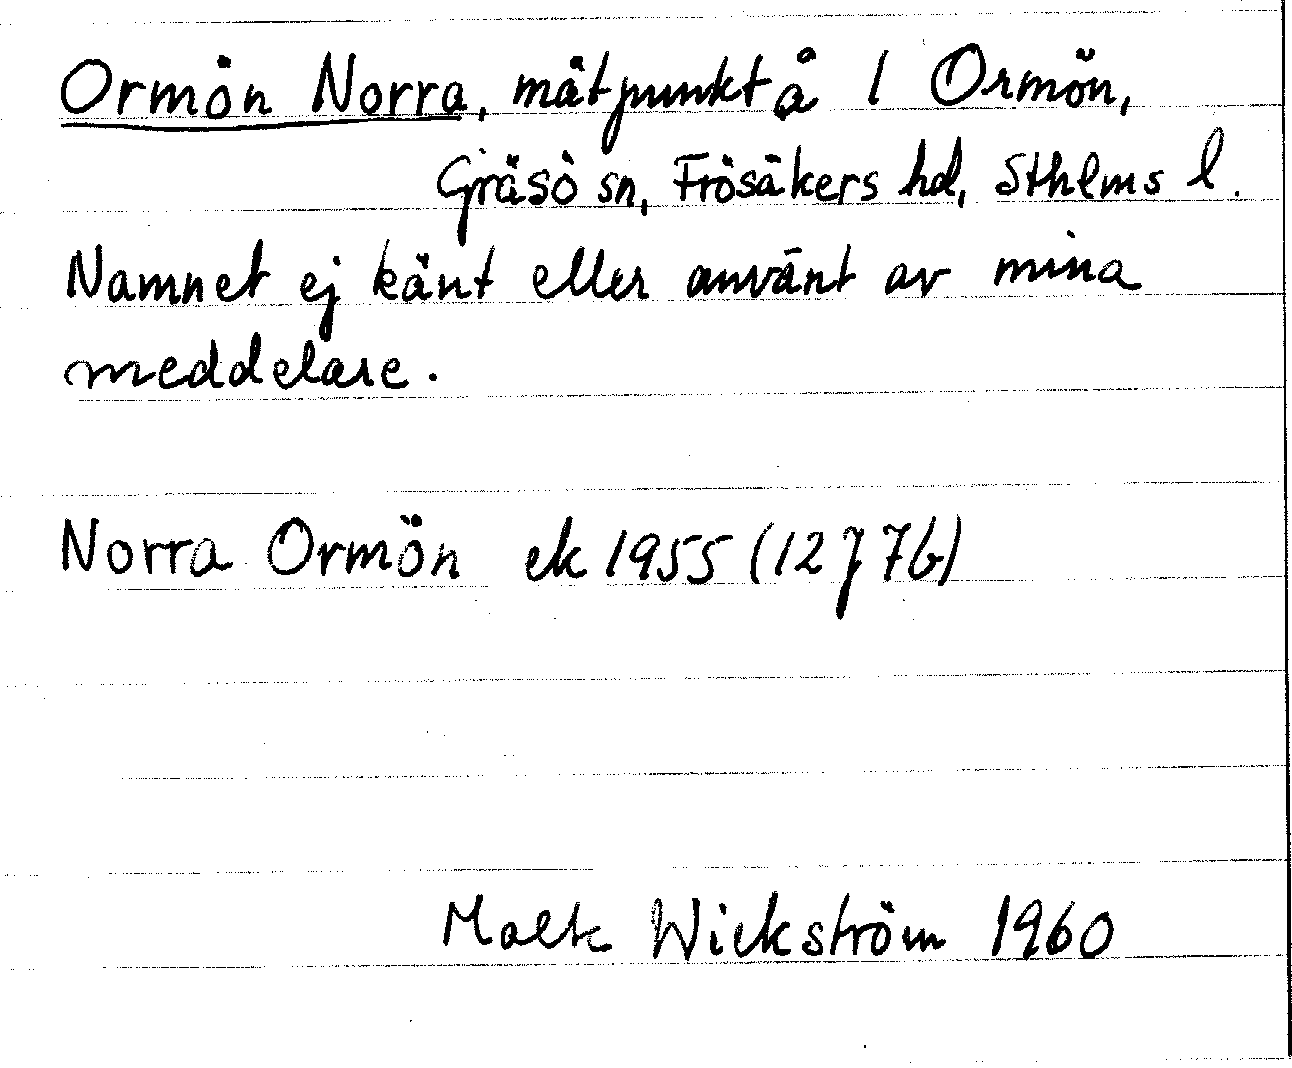 Ormön Norra, mätpunkt å 1 Ormön,
Gräsö sn, Frösåkers hd, Sthlms l.
Namnet ej känt eller använt av mina
meddelare.
Norra Ormön ek 1955 (12 J 7b)
Wickström 1960